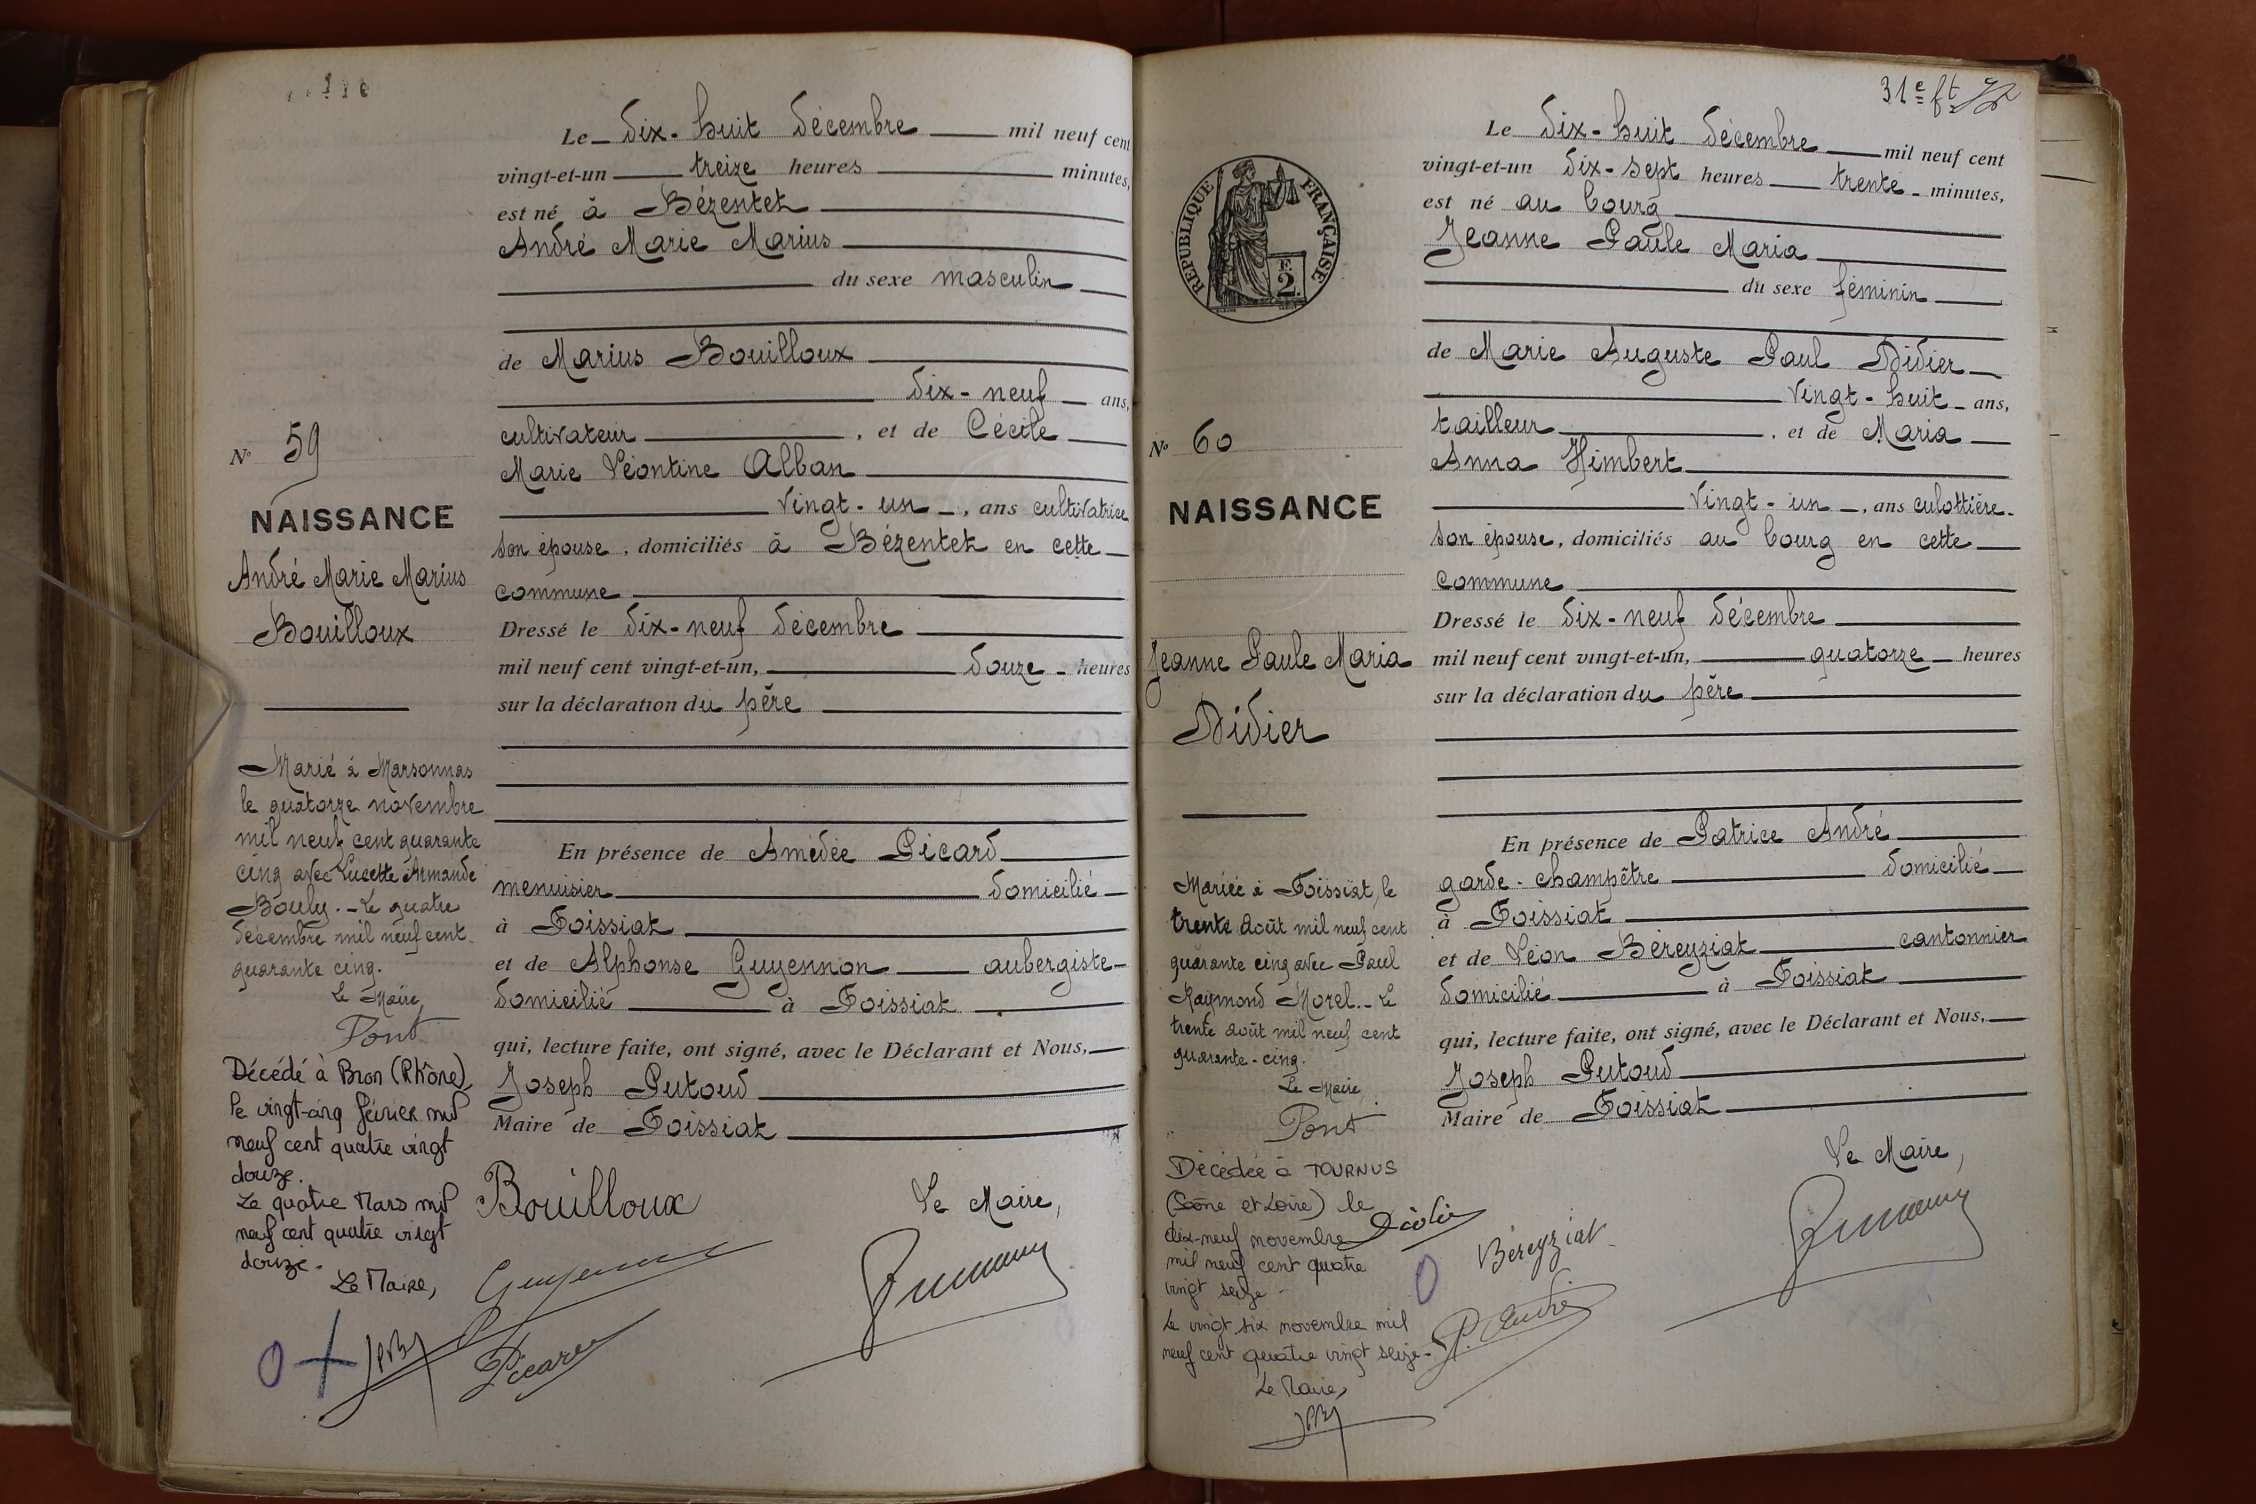 Le dix-huit décembre mil neuf cent
vingt-et-un treize heures minutes,
est né à Bézentet
André Marie Marius
du sexe masculin
de Marius Bouilloux
dix-neuf ans,
cultivateur, et de Cécile
Marie Léontine Alban
vingt-un, ans cultivatrice
son épouse, domiciliés à Bézentet en cette
commune
Dressé le dix-neuf décembre
mil neuf cent vingt-et-un, douze heures
sur la déclaration du père
En présence de Amédée Picard
menuisier domicilié
à Foissiat
et de Alphonse Guyennon aubergiste
domicilié à Foissiat
qui, lecture faite, ont signé, avec le Déclarant et Nous,
Joseph Putoud
Maire de Foissiat
Bouilloux
Le Maire,
Guyennon
Picard
No 59
NAISSANCE
André Marie Marius
Bouilloux
Marié à Marsonnas
le quatorze novembre
mil neuf cent quarante
cinq avec Lucette Armande
Bouly. - Le quatre
décembre mil neuf cent
quarante cinq.
Le Maire,
Pont
Décédé à Bron (Rhône)
le vingt-cinq février mil
neuf cent quatre vingt
douze.
Le quatre Mars mil
neuf cent quatre vingt
douze.
Le Maire,
31e ft
Le dix-huit décembre mil neuf cent
vingt-et-un dix-sept heures trente minutes,
est né au bourg
Jeanne Paule Maria
du sexe féminin
de Marie Auguste Paul Didier
vingt-huit ans,
tailleur, et de Maria
Anna Himbert
vingt-un, ans culottière
son épouse, domiciliés au bourg en cette
commune
Dressé le dix-neuf décembre
mil neuf cent vingt-et-un, quatorze heures
sur la déclaration du père
En présence de Patrice André
garde-champêtre domicilié
à Foissiat
et de Léon Béreyziat cantonnier
domicilié à Foissiat
qui, lecture faite, ont signé, avec le Déclarant et Nous,
Joseph Putoud
Maire de Foissiat
Le Maire,
Didier
Béreyziat
P. André
REPUBLIQUE FRANÇAISE
F.
2
No 60
NAISSANCE
Jeanne Paule Maria
Didier
Mariée à Foissiat, le
trente août mil neuf cent
quarante cinq avec Paul
Raymond Morel. - Le
trente août mil neuf cent
quarante-cinq.
Le Maire,
Pont
Décédée à TOURNUS
(Saône et Loire) le
dix-neuf novembre
mil neuf cent quatre
vingt seize -
Le vingt six novembre mil
neuf cent quatre vingt seize -
Le Maire,